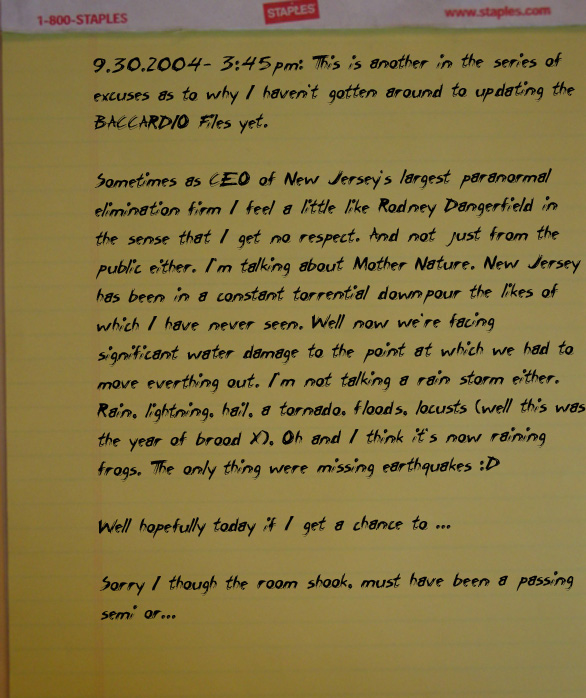 1-800-STAPLES
STAPLES
www.staples.com
9.30.2004- 3:45pm: This is another in the series of
excuses as to why I haven't gotten around to updating the
BACCARDIO Files yet.
Sometimes as CEO of New Jersey's largest paranormal
elimination firm I feel a little like Rodney Dangerfield in
the sense that I get no respect. And not just from the
public either. I'm talking about Mother Nature. New Jersey
has been in a constant torrential downpour the likes of
which I have never seen. Well now we're facing
significant water damage to the point at which we had to
move everthing out. I'm not talking a rain storm either.
Rain, lightning, hail, a tornado, floods, locusts (well this was
the year of brood X), Oh and I think it's now raining
frogs. The only thing were missing earthquakes :D
Well hopefully today if I get a chance to ...
Sorry I though the room shook, must have been a passing
semi or...